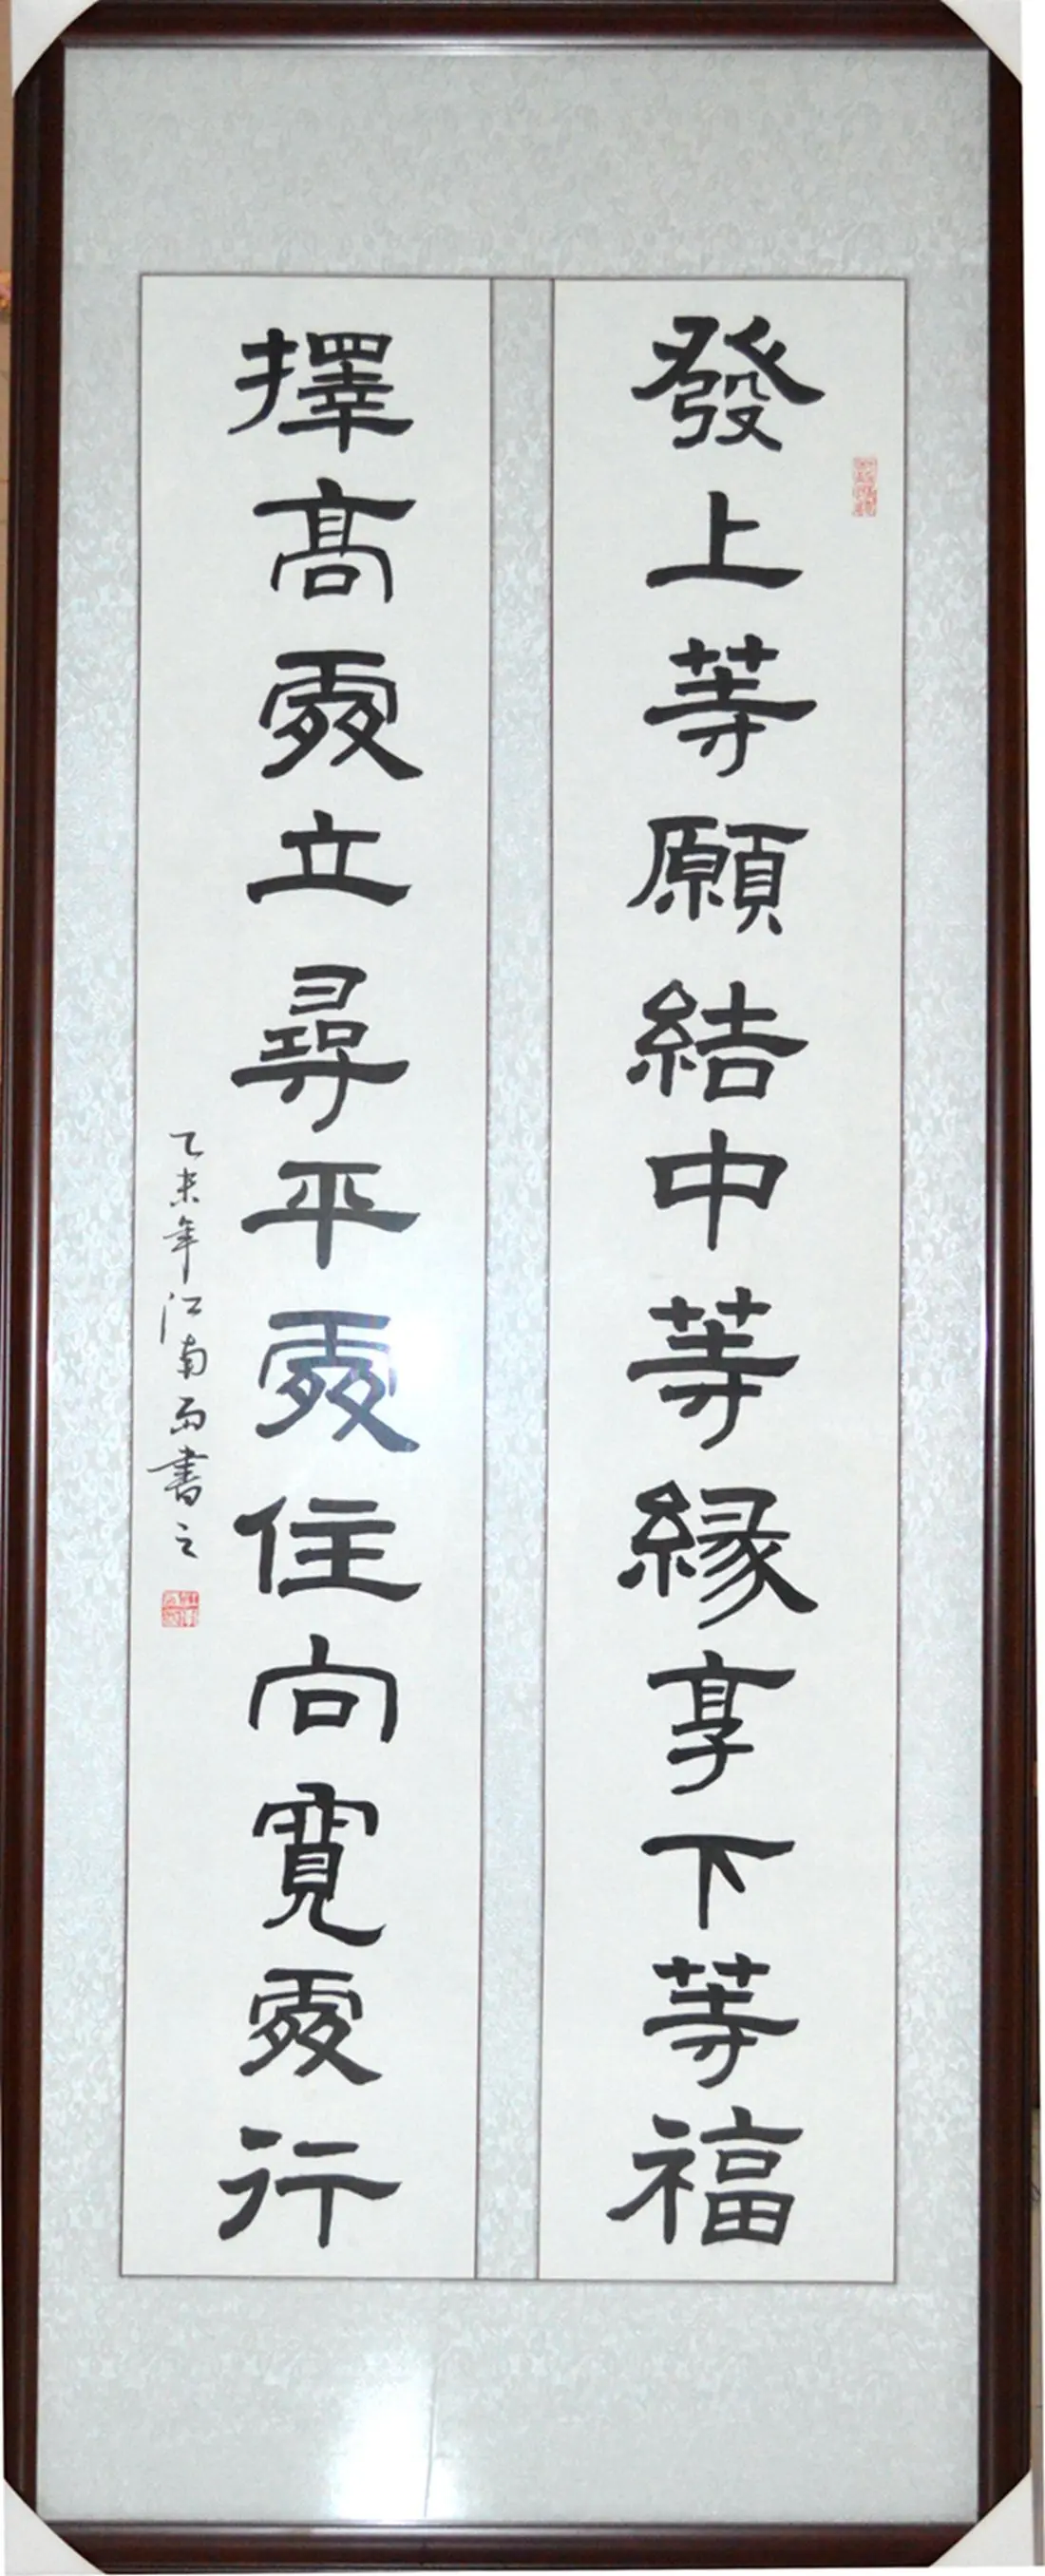 發上等願結中等緣享下等福
擇高處立尋平處住向寬處行
乙未年江南雨書之